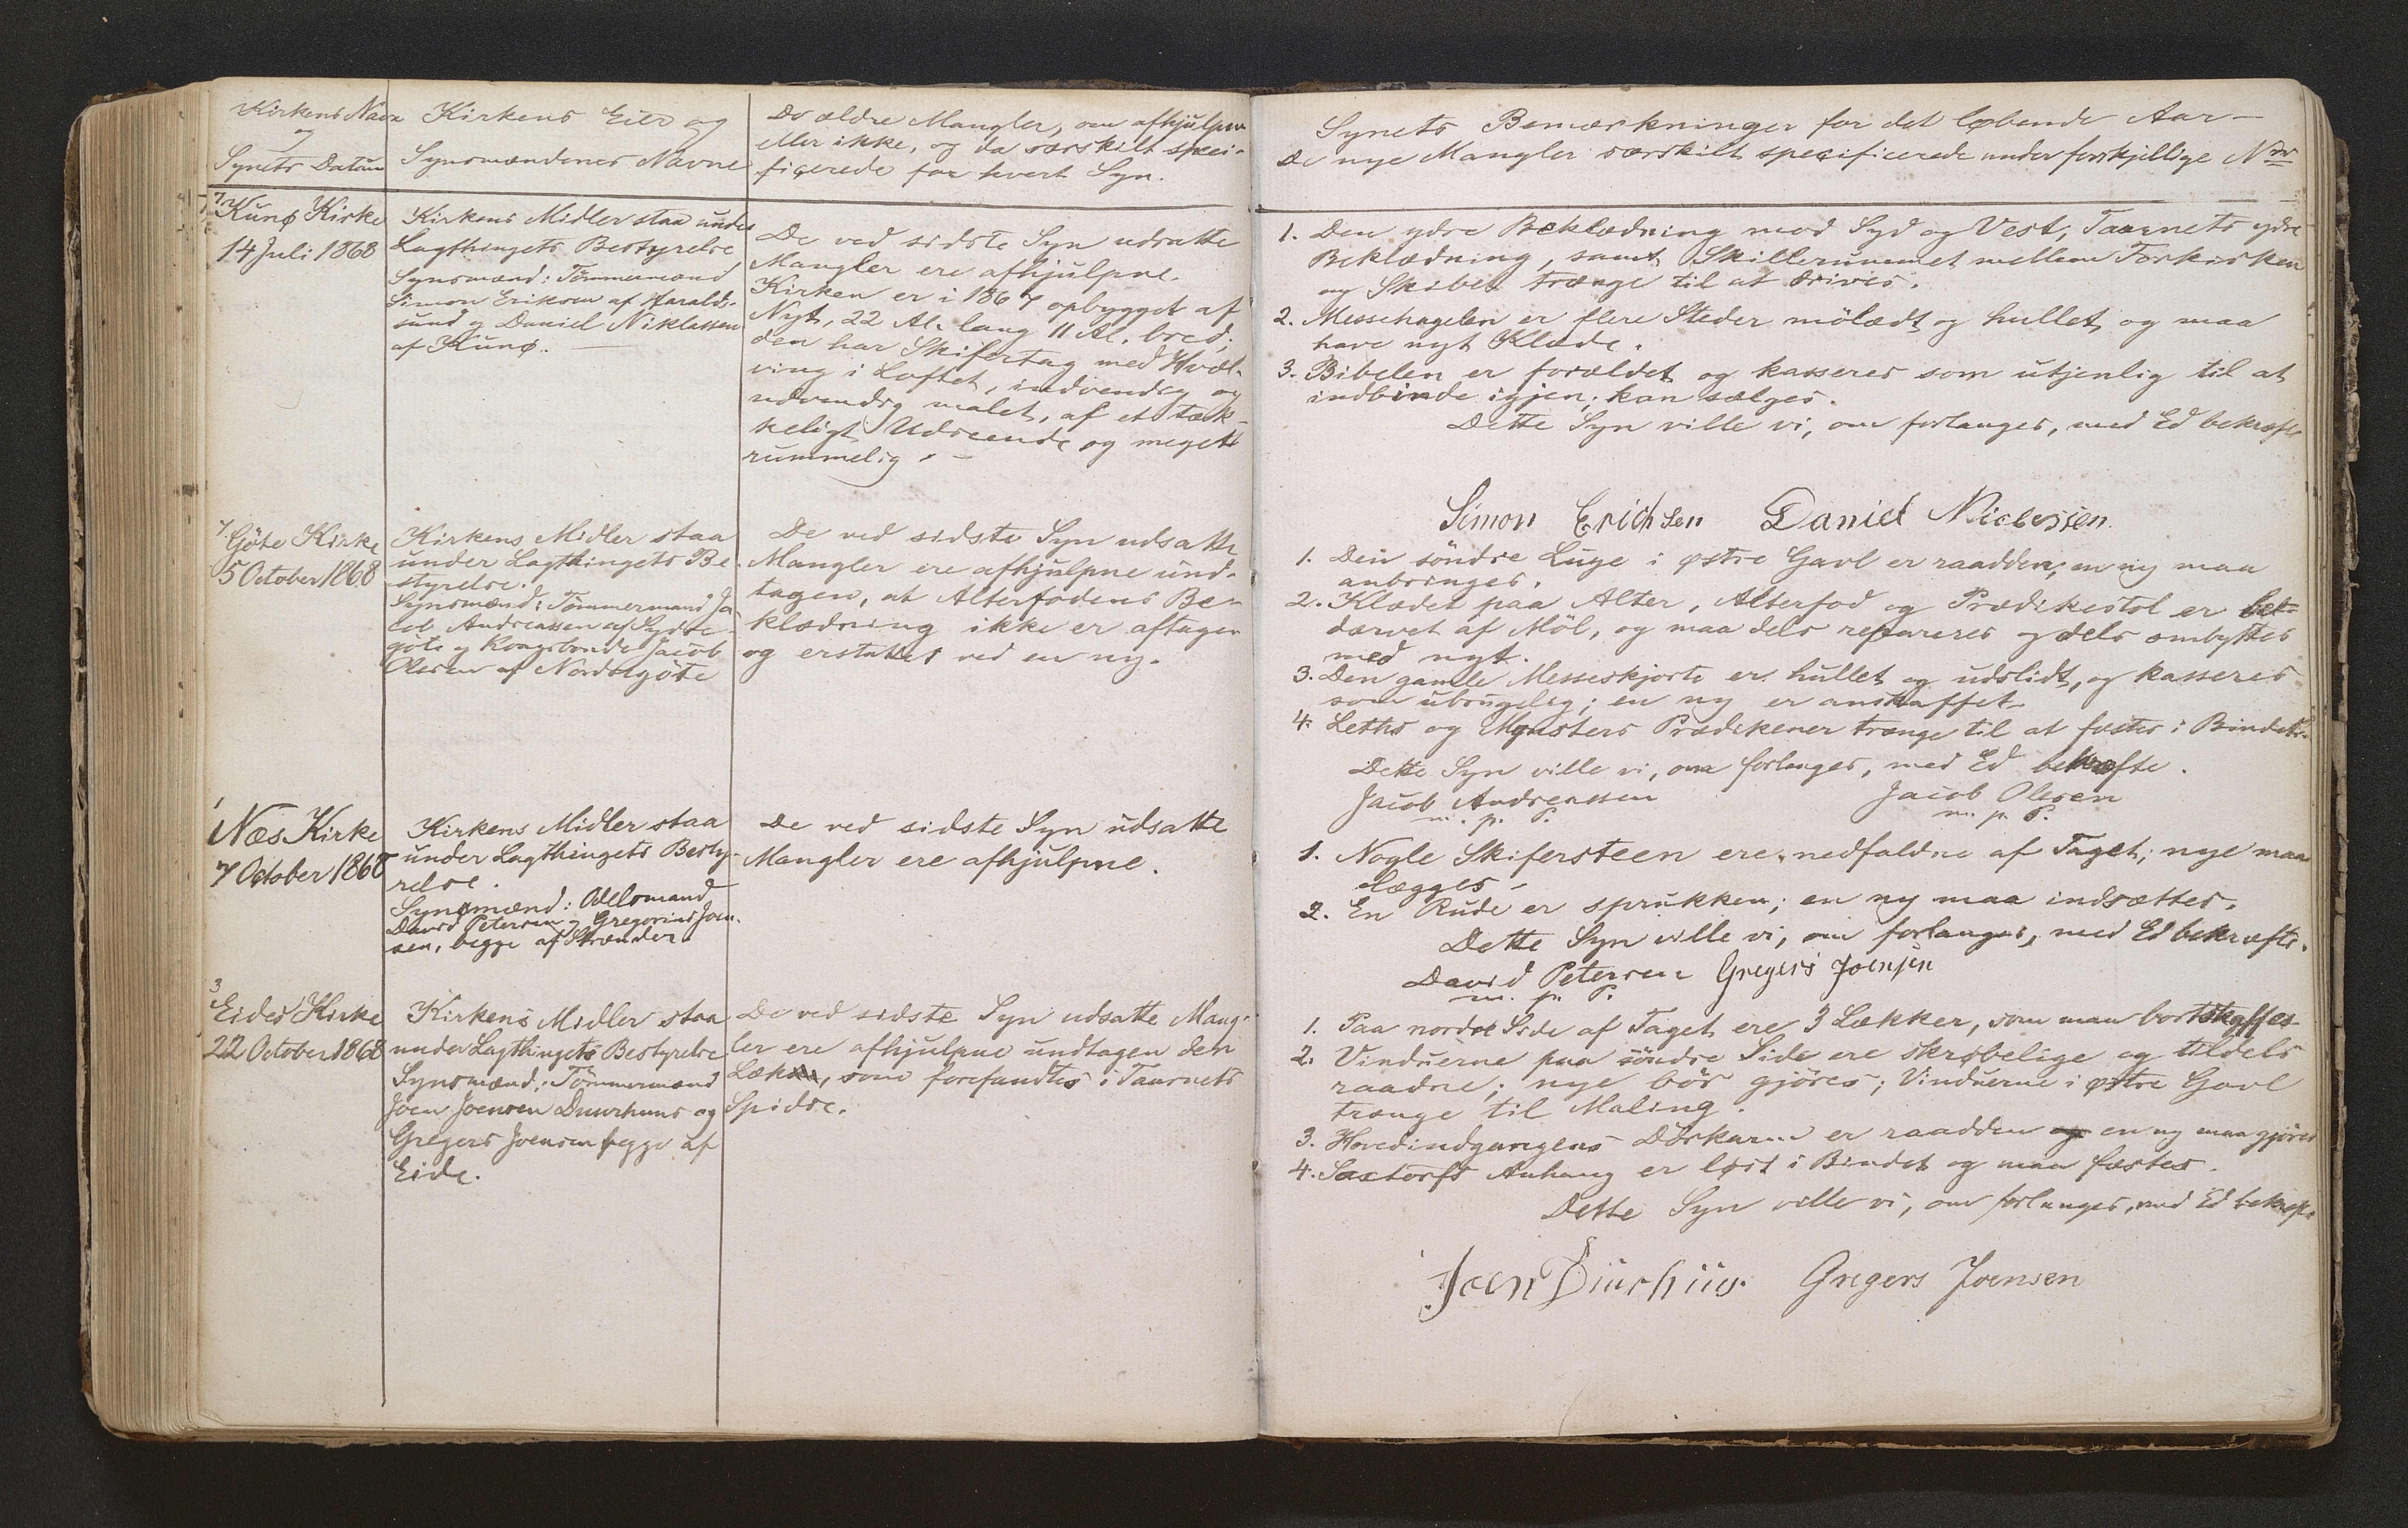 Kirkens Navn
og
Synets Datum
Kirkens Eier og
Synsmændenes Navne
De ældre Mangler, om afhjulpne
eller ikke, og da særskilt speci-
ficerede for hvert Syn.
7
Kunø Kirke
14 Juli 1868
Kirkens Midler staa under
Lagthingets Bestyrelse
Synsmænd: Tömmermænd
Simon Eriksen af Harald-
sund og Daniel Niklassen
af Kunø.
De ved sidste Syn udsatte
Mangler ere afhjulpne.
Kirken er i 1867 opbygget af
Nyt, 22 Al. lang 11 Al. bred;
den har Skifertag med Hvæl-
ving i Loftet, indvendig og
udvendig malet, af et tæk-
keligt Udseende og meget
rummelig. -
7
Göte Kirke
5 October 1868
Kirkens Midler staa
under Lagthingets Be-
styrelse.
Synsmænd: Tömmermand Ja-
cob Andreassen af Sydre-
göte og Kongsbonde Jacob
Olesen af Nordregöte
De ved sidste Syn udsatte
Mangler ere afhjulpne und-
tagen, at Alterfodens Be-
klædning ikke er aftagen
og erstattet ved en ny.
1
Næs Kirke
7 October 1868
Kirkens Midler staa
under Lagthingets Besty-
relse.
Synsmænd: Odelsmænd
David Petersen og Gregorius Joen-
sen, begge af Strænder.
De ved sidste Syn udsatte
Mangler ere afhjulpne.
3
Eides Kirke
22 October 1868
Kirkens Midler staa
under Lagthingets Bestyrelse
Synsmænd: Tömmermænd
Joen Joensen Duurhuus og
Gregers Joensen begge af
Eide.
De ved sidste Syn udsatte Mang-
ler ere afhjulpne undtagen den
Læk, som forefandtes i Taarnets
Spidse.
Synets Bemærkninger for det løbende Aar-
De nye Mangler særskilt specificerede under forskjellige Nr
1. Den ydre Beklædning mod Syd og Vest, Taarnets ydre
Beklædning, samt Skillerummet mellem Forkirken
og Skibet trænge til at drives.
2. Messehagelen er flere Steder mölædt og hullet, og maa
have nyt Klæde.
3. Bibelen er forældet og kasseres som utjenlig til at
indbinde igjen; kan sælges.
Dette Syn ville vi, om forlanges, med Ed bekræfte
Simon Erichsen Daniel Niclessen.
1. Den söndre Luge i østre Gavl er raadden; en ny maa
anbringes.
2. Klædet paa Alter, Alterfod og Prædikestol er bet-
dærvet af Möl, og maa dels repareres og dels ombyttes
med nyt.
3. Den gamle Messeskjorte er hullet og udslidt, og kasseres
som ubrugelig; en ny er anskaffet.
4. Leths og Mynsters Prædikener trænge til at fæstes i Bindet.
Dette Syn ville vi, om forlanges, med Ed bekræfte.
Jacob Andreassen Jacob Olesen
m. p. P. m. p. P.
1. Nogle Skifersteen ere nedfaldne af Taget; nye maa
lægges -
2. En Rude er sprukken; en ny maa indsættes.
Dette Syn ville vi, om forlanges, med Ed bekræfte.
David Petersen Gregers Joensen
m. p. P.
1. Paa nordre Side af Taget ere 3 Lækker, som maa bortskaffes
2. Vinduerne paa söndre Side ere skrøbelige og tildels
raadne; nye bör gjöres; Vinduerne i østre Gavl
trænge til Maling.
3. Hovedindgangens Dörkarm er raadden en ny maa gjöres
4. Saxtorfs Anhang er löst i Bindet og maa fæstes.
Dette Syn ville vi, om forlanges, med Ed bekræfte
Joen Duurhuus. Gregers Joensen